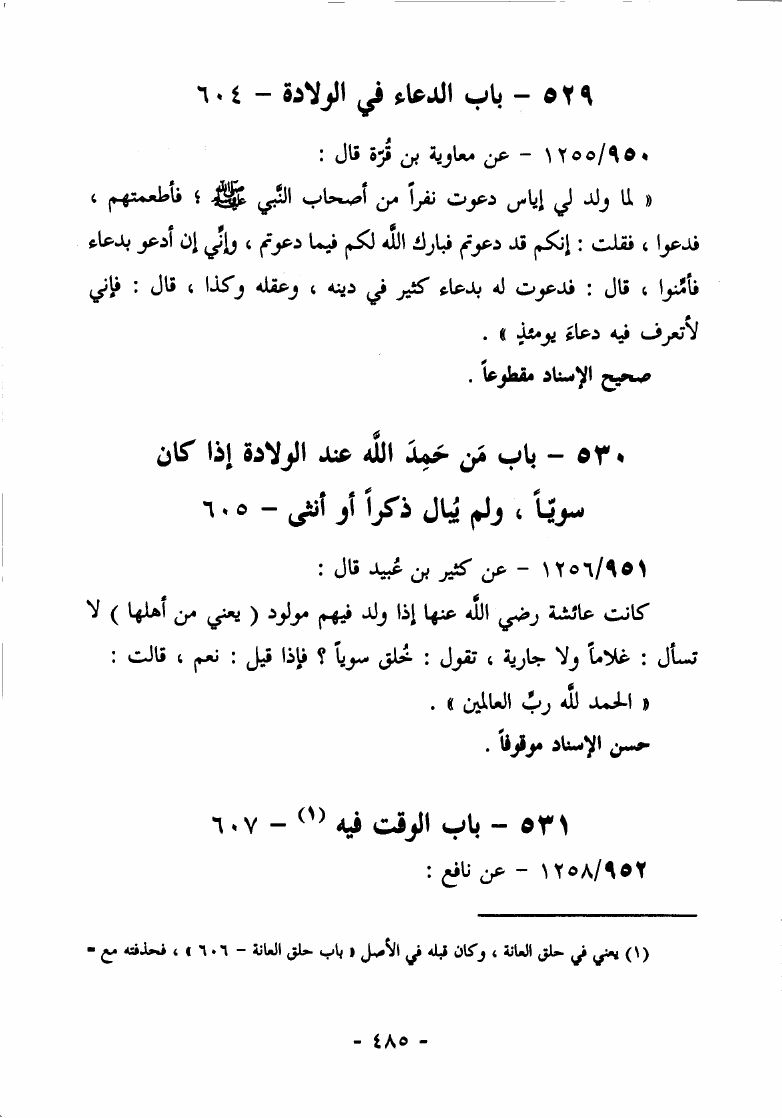 ٥٢٩ – باب الدعاء في الولادة – ٦٠٤
١٢٥٥/٩٥٠ – عن معاوية بن قُرّة قال :
« لما ولد لي إياس دعوت نفراً من أصحاب النَّبي ﷺ ؛ فأطعمتهم ،
فدعوا ، فقلت : إنكم قد دعوتم فبارك اللَّه لكم فيما دعوتم ، وإنِّي إن أدعو بدعاء
فأمِّنوا ، قال : فدعوت له بدعاء كثير في دينه ، وعقله وكذا ، قال : فإني
لأتعرف فيه دعاءَ يومئذٍ » .
صحيح الإسناد مقطوعاً .
٥٣٠ – باب مَن حَمِدَ اللَّه عند الولادة إذا كان
سويّاً ، ولم يُبال ذكراً أو أنثى – ٦٠٥
١٢٥٦/٩٥١ – عن كثير بن عُبيد قال :
كانت عائشة رضي اللَّه عنها إذا ولد فيهم مولود ( يعني من أهلها ) لا
تسأل : غلاماً ولا جارية ، تقول : خُلق سوياً ؟ فإذا قيل : نعم ، قالت :
« الحمد للَّه ربِّ العالمين » .
حسن الإسناد موقوفاً .
٥٣١ – باب الوقت فيه (١) – ٦٠٧
١٢٥٨/٩٥٢ – عن نافع :
(١) يعني في حلق العانة ، وكان قبله في الأصل « باب حلق العانة – ٦٠٦ » ، فحذفته مع =
- ٤٨٥ -